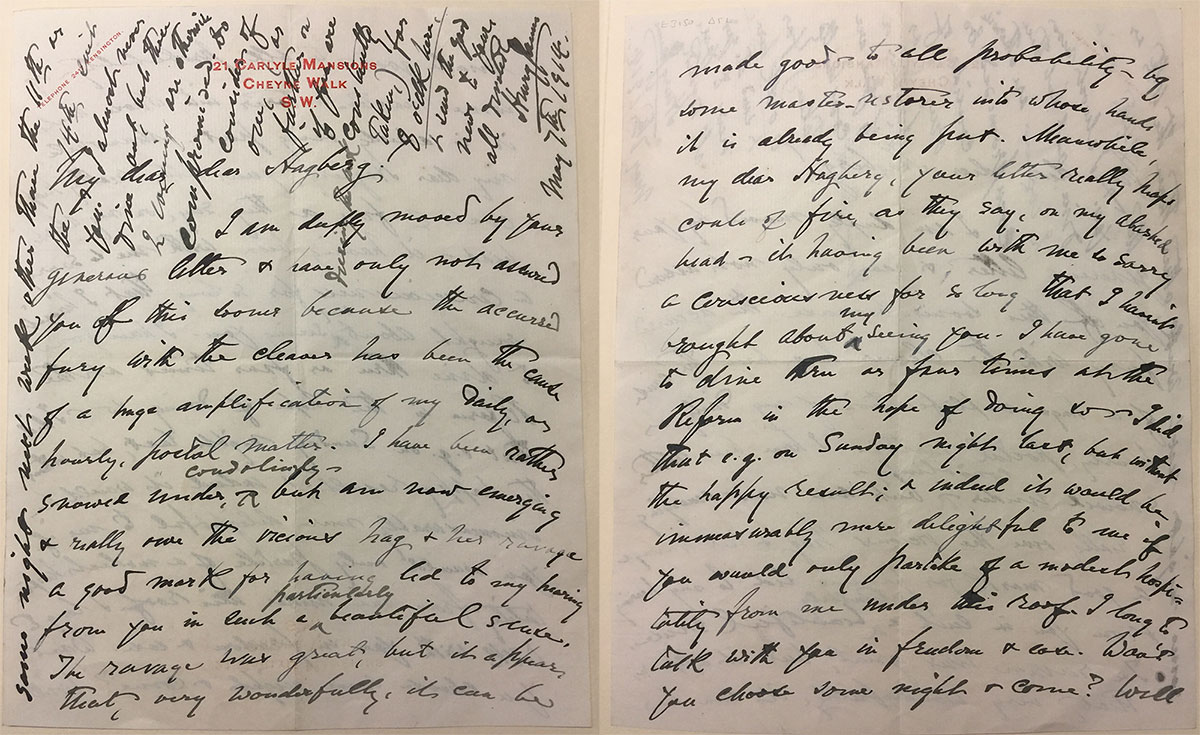 TELEPHONE 2417 KENSINGTON.
21 CARLYLE MANSIONS
CHEYNE WALK
S.W.
My dear, dear Hagberg.
I am deeply moved by your
generous letter & have only not assured
you of this sooner because the accursed
fury with the cleaver has been the cause
of a huge amplification of my daily, or
hourly, postal matter. I have been rather
snowed under, condolingly but am now emerging
& really owe the vicious hag & her ravage
a good mark for having led to my hearing
from you in such a particularly beautiful sense.
The ravage was great, but it appears
that, very wonderfully, it can be
made good – to all probability – by
some master-restorer into whose hands
it is already being put. Meanwhile,
my dear Hagberg, your letter really heaps
coals of fire, as they say, on my abashed
head – its having been with me so sorry
a consciousness for so long that I haven't
brought about my seeing you. I have gone
to dine three or four times at the
Reform in the hope of doing so – I did
that e.g. on Sunday night last, but without
the happy result; & indeed it would be
immeasurably more delightful to me if
you would only partake of a modest hospi-
tality from me under this roof. I long to
talk with you in freedom & ease. Won't
you choose some night & come? Will
some night next week other than the 11th or
the 14th suit
you? I almost never
dine out, but these
2 evenings are otherwise
compromised. Do
consider of
one as
further on
if you are
constantly
taken, for
8 o'clk here.
I send the god
news & your
all devoted
Henry James
May 7th 1914.